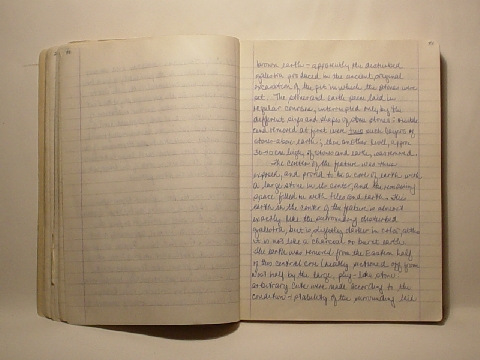 brown earth - apparently the disturbed
produced in the ancient, original
excavation of the pits in which the stones were
set. The stones and earth were laid in
regular courses, interrupted only by the
different sizes and shapes of stone
and removed at first were two such layers of
stones - above earth; then another level, approx
30-40 cm high, of stones and earth, was removed.
The center of the feature was thus
exposed, and proved to be a core of earth with
a large stone in the center, and the remaining
space filled in with tiles and earth. This
earth in the center of the feature is almost
exactly like the surrounding disturbed
but is slightly darker in color,
it is not like a charcoal or burnt earth.
The earth was removed from the Eastern half
of this central core (neatly sectioned off from
West half by the large, plug-like stone
arbitrary cuts were made according to the
condition - stability of the surrounding fill